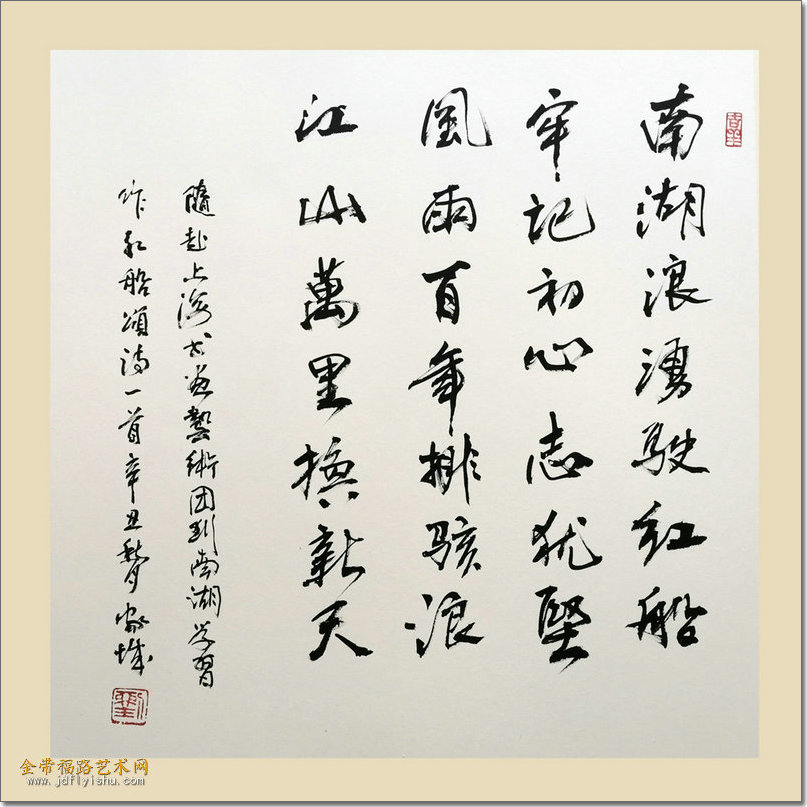 南湖浪湧駛紅船
牢記初心志猶堅
風雨百年排駭浪
江山萬里換新天
隨赴上海书画藝術团到南湖学習
作紅船頌詩一首辛丑秋月家城
金带福路艺术网
www.jdflyishu.com